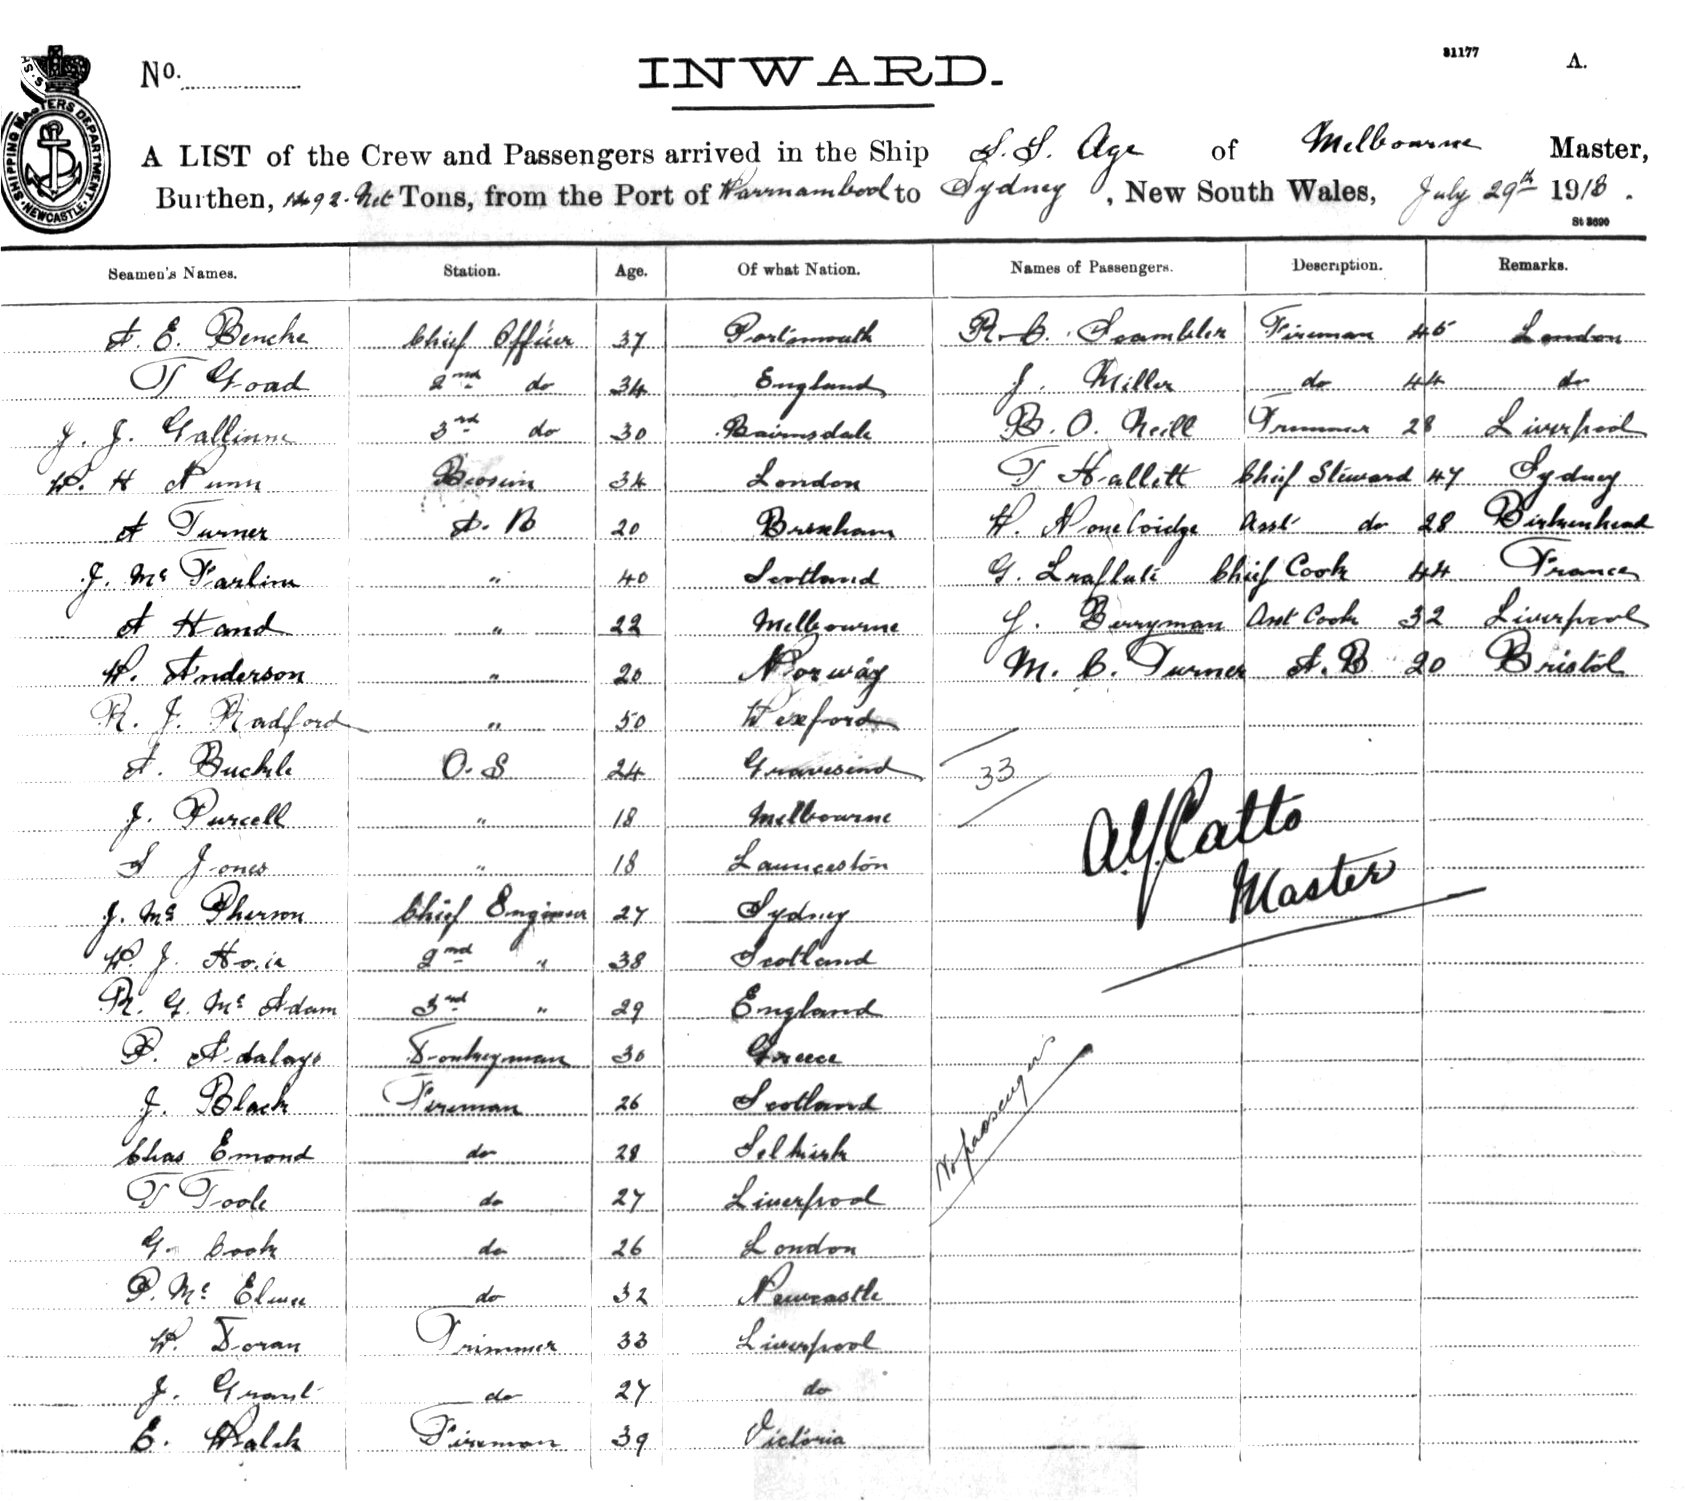 No.
INWARD.
81177
A.
SHIPPING MASTERS DEPARTMENT
NEWCASTLE
A LIST of the Crew and Passengers arrived in the Ship S.S. Age of Melbourne Master,
Burthen, 1492 Net Tons, from the Port of Warrnambool to Sydney, New South Wales, July 29th 1918.
St 3690
Seamen's Names. Station. Age. Of what Nation. Names of Passengers. Description. Remarks.
A. E. Bencke Chief Officer 37 Portsmouth R. C. Scambler Fireman 45 London
T Goad 2nd do 34 England J. Miller do 44 do
J. J. 3rd do 30 Bairnsdale B. O. Neill Trimmer 28 Liverpool
W. H Nunn Bosun 34 London T Hallett Chief Steward 47 Sydney
A Turner A. B 20 Brixham W. Asst do 28 Birkenhead
J. Mc Farline " 40 Scotland G. Chief Cook 44 France
A Hand " 22 Melbourne J. Berryman Asst Cook 32 Liverpool
W. Anderson " 20 Norway M. C. Turner A.B 20 Bristol
R. J. Radford " 50 Wexford
A. Buckle O. S 24 Gravesend 33
J. Purcell " 18 Melbourne
S Jones " 18 Launceston
A.J. Catto
Master
J. Mc Pherson Chief Engineer 27 Sydney
W. J. 2nd " 38 Scotland
R. G. Mc Adam 3rd " 29 England
P. Adalays Donkeyman 30 Greece
J. Black Fireman 26 Scotland
Chas Emond do 28 Selkirk No passengers
T Toole do 27 Liverpool
G. Cook do 26 London
P. Mc do 32 Newcastle
W. Doran Trimmer 33 Liverpool
J. Grant do 27 do
E. Walsh Fireman 39 Victoria